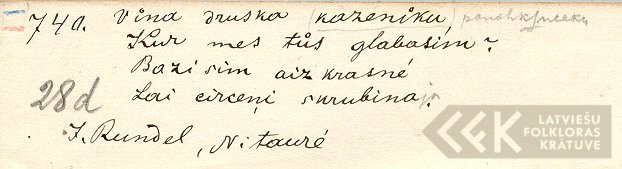 740. Vina druska kazeniku,
Kur mes tūs glabasim?
Bazisim aiz krasnē
28d Lai circeņi skrubina.
J. Rundel, Nitaurē
LATVIEŠU
FOLKLORAS
KRĀTUVE